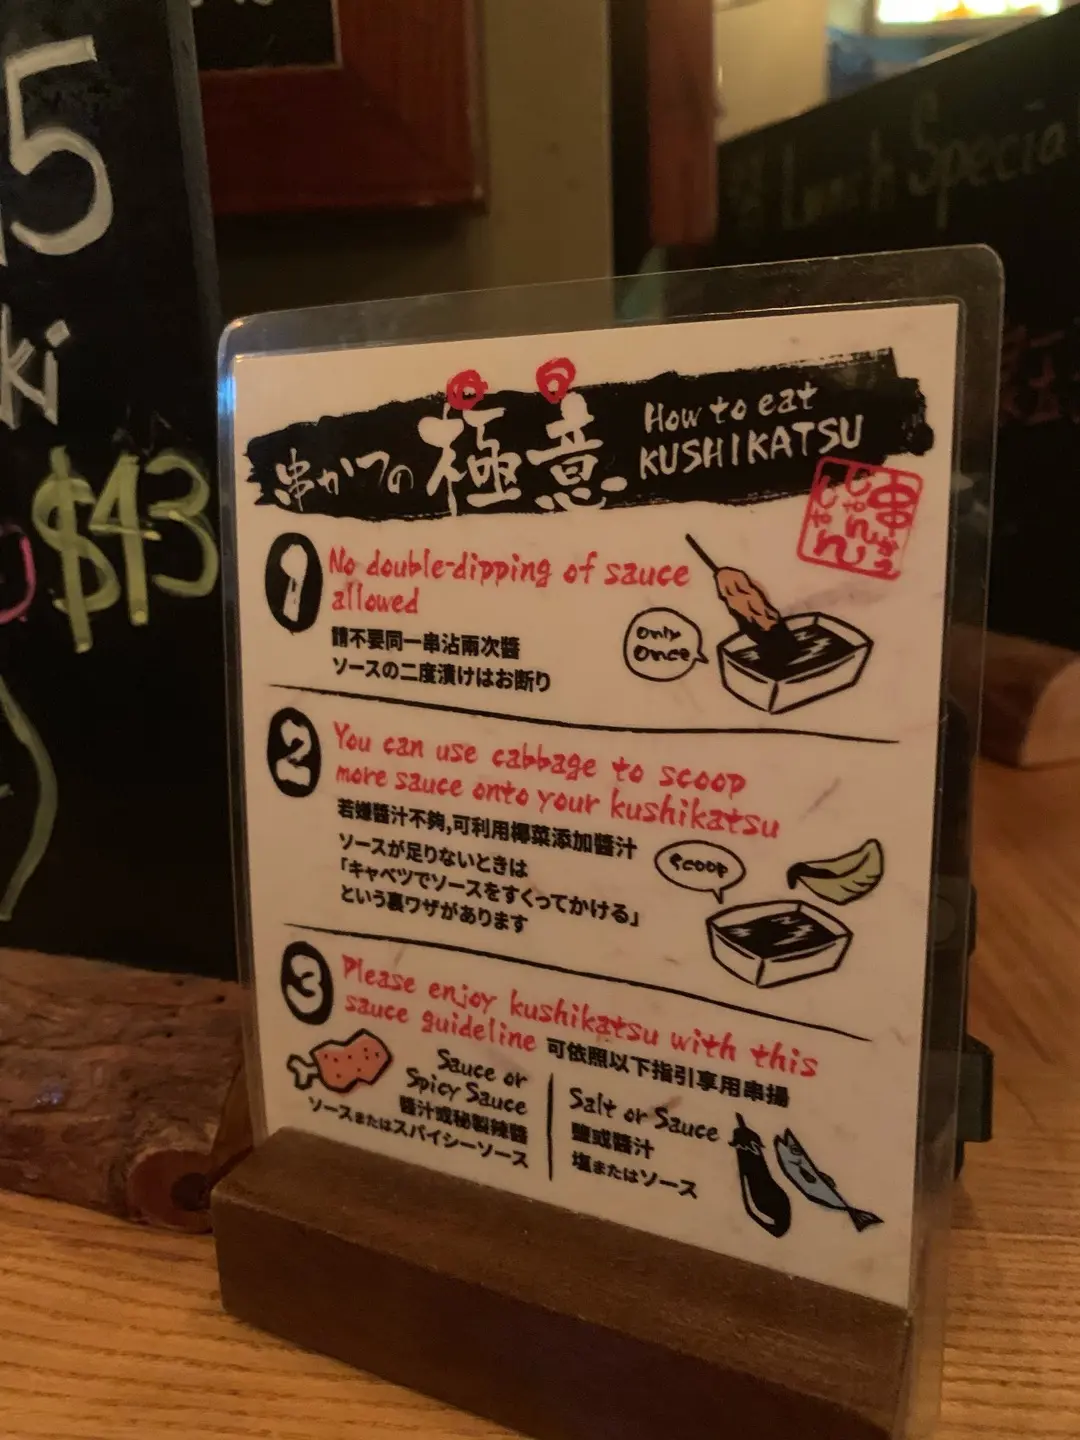 15
ki
$43
Lunch Special
串かつの極意
How to eat
KUSHIKATSU
串かつ
じゃん
じゃん
1
No double-dipping of sauce
allowed
請不要同一串沾兩次醬
ソースの二度漬けはお断り
Only
Once
2
You can use cabbage to scoop
more sauce onto your kushikatsu
若嫌醬汁不夠,可利用椰菜添加醬汁
ソースが足りないときは
「キャベツでソースをすくってかける」
という裏ワザがあります
Scoop
3
Please enjoy kushikatsu with this
sauce guideline 可依照以下指引享用串揚
Sauce or
Spicy Sauce
醬汁或秘製辣醬
ソースまたはスパイシーソース
Salt or Sauce
鹽或醬汁
塩またはソース